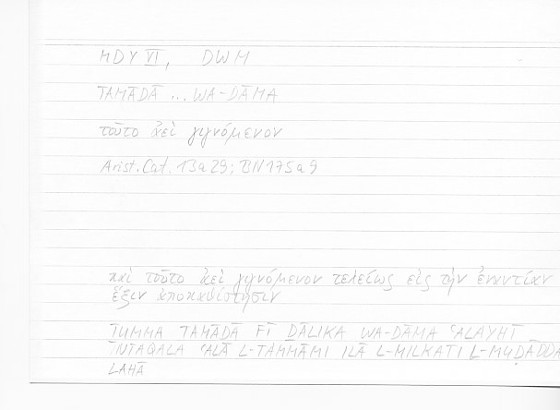 MDY VI, DWM
TAMĀDĀ ... WA-DĀMA
τοῦτο ἀεὶ γιγνόμενον
Arist. Cat. 13a29; BN175a9
καὶ τοῦτο ἀεὶ γιγνόμενον τελείως εἰς τὴν ἐναντίαν
ἕξιν ἀποκαθίστησιν
ṮUMMA TAMĀDĀ FĪ ḎĀLIKA WA-DĀMA ʿALAYHI
INTAQALA ʿALĀ L-TAMĀMI ILĀ L-MILKATI L-MUḌĀDDA
LAHĀ